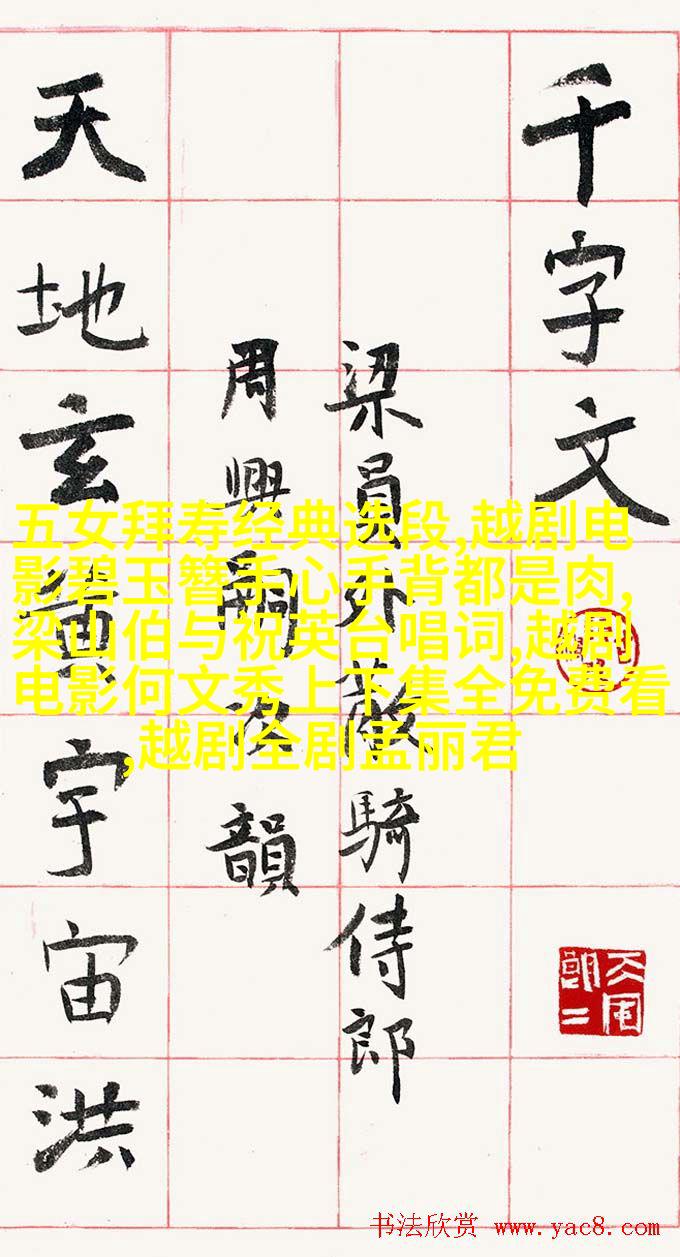 千字文
梁員外散騎侍郎
周興嗣次韻
天地玄黃宇宙洪
五女拜寿经典选段,越剧电
影碧玉簪手心手背都是肉,
梁山伯与祝英台唱词,越剧
电影何文秀上下集全免费看
,越剧全剧孟丽君
书法欣赏 www.yac8.com